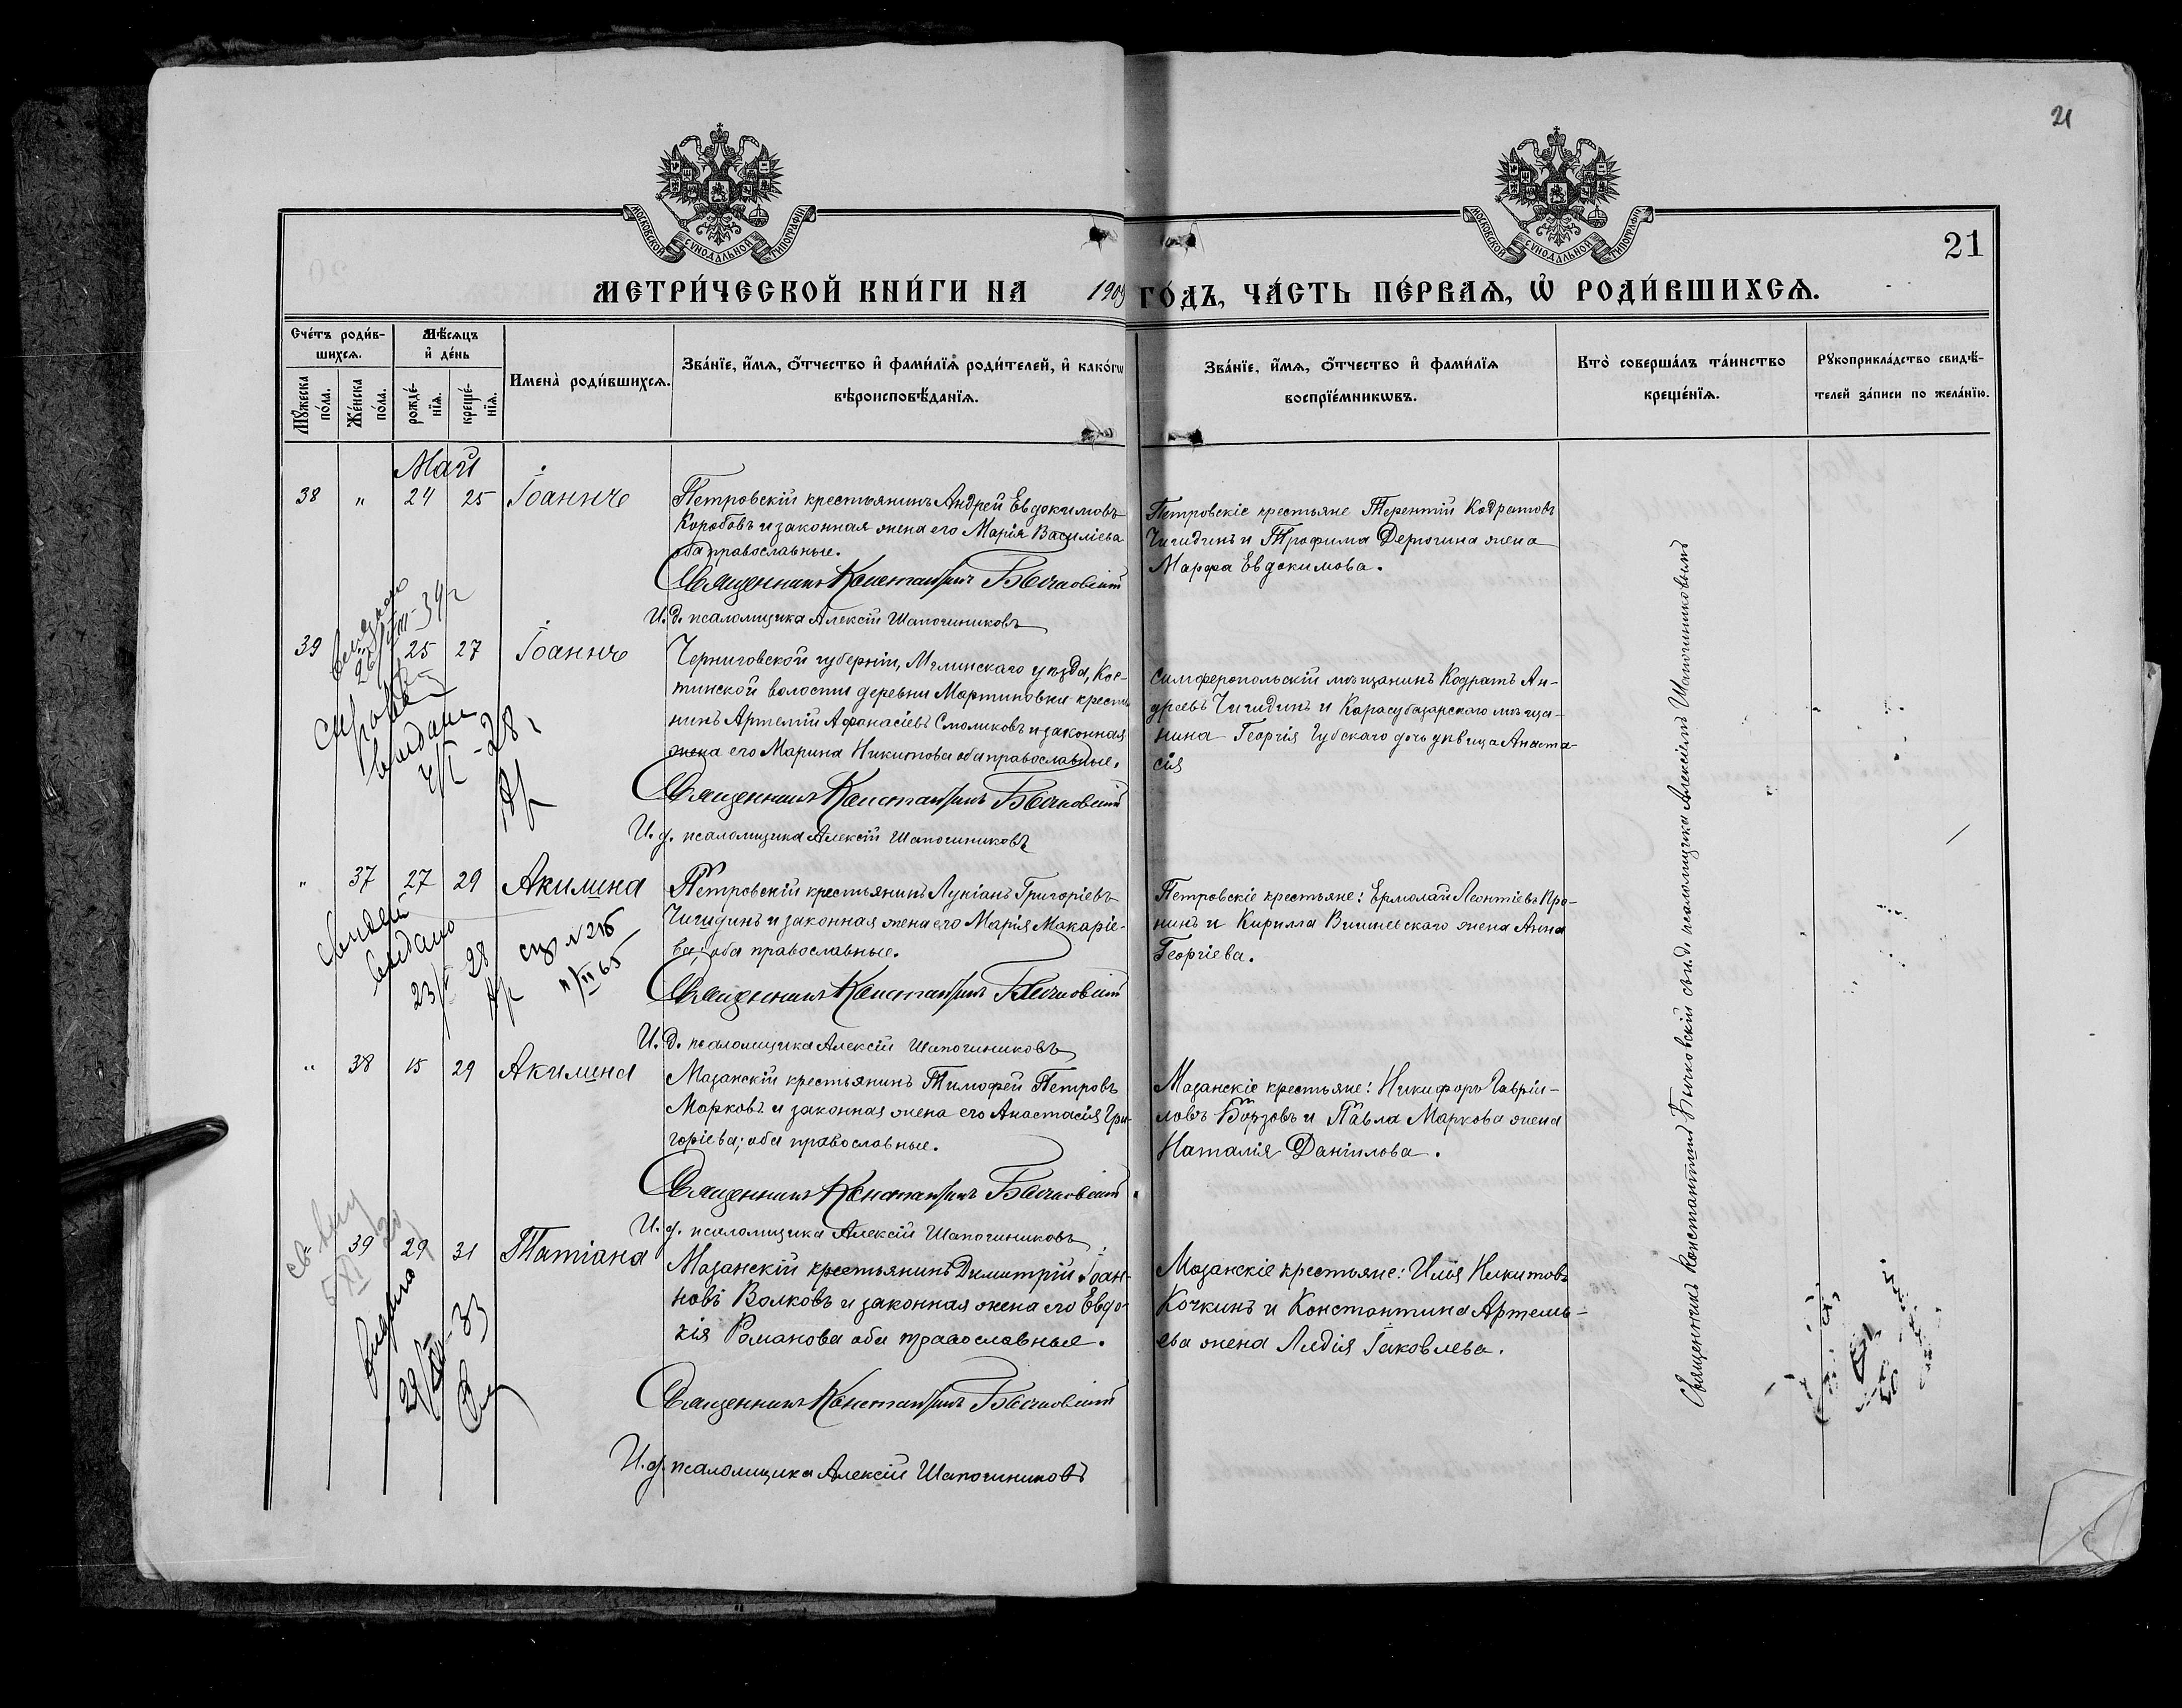 21
МОСКОВСКОЙ СѴНОДАЛЬНОЙ ТИПОГРАФІИ
МОСКОВСКОЙ СѴНОДАЛЬНОЙ ТИПОГРАФІИ
21
МЕТРИ́ЧЕСКОЙ КНИ́ГИ НА 1909 ГО́ДЪ, ЧА́СТЬ ПЕ́РВАѦ, Ѡ҆ РОДИ́ВШИХСѦ.
Сче́тъ роди́в-
шихсѧ.
Мꙋ́жеска
по́ла.
Же́нска
по́ла.
Мѣ́сѧцъ
и҆ де́нь
рожде́-
нїѧ.
креще́-
нїѧ.
Имена̀ роди́вшихсѧ.
Зва́нїе, и҆́мѧ, ѻ҆́тчество и҆ фами́лїѧ роди́телей, и҆ како́гѡ
вѣроисповѣ́данїѧ.
Зва́нїе, и҆́мѧ, ѻ҆́тчество и҆ фами́лїѧ
воспрїе́мникѡвъ.
Кто̀ соверша́лъ та́инство
креще́нїѧ.
Рꙋкоприкла́дство свидѣ́-
телей за́писи по жела́нїю.
Май
38 " 24 25 Іоаннъ
Петровскій крестьянинъ Андрей Евдокимовъ
Коробовъ и законная жена его Марія Василіева
оба православные.
Священникъ Константинъ Бычковскій
И. д. псаломщика Алексій Шапочниковъ
Петровскіе крестьяне Терентій Кодратовъ
Чигидинъ и Трофима Дерюгина жена
Марфа Евдокимова.
39 25 27 Іоаннъ
Черниговской губерніи, Мглинскаго уѣзда, Кос-
тинской волости деревни Мартиновки крестья
нинъ Артемій Афанасіевъ Смоликовъ и законная
жена его Марина Никитова оба православные.
Священникъ Константинъ Бычковскій
И. д. псаломщика Алексій Шапочниковъ
Симферопольскій мѣщанинъ Кодратъ Ан-
дреевъ Чигидинъ и Карасубазарскаго мѣща-
нина Георгія Чубскаго дочь дѣвица Анаста-
сія
выдана
28 г
" 37 27 29 Акилина
Петровскій крестьянинъ Лукіанъ Григоріевъ
Чигидинъ и законная жена его Марія Макаріе-
ва; оба православные.
Священникъ Константинъ Бычковскій
И. д. псаломщика Алексій Шапочниковъ
Петровскіе крестьяне: Ермолай Леонтіевъ Про-
нинъ и Кирилла Вишневскаго жена Анна
Георгіева.
выдано
28
" 38 15 29 Акилина
Мазанскій крестьянинъ Тимофей Петровъ
Марковъ и законная жена его Анастасія Гри-
горіева; оба православные.
Священникъ Константинъ Бычковскій
И. д. псаломщика Алексій Шапочниковъ
Мазанскіе крестьяне: Никифоръ Гавріи-
ловъ Борзовъ и Павла Маркова жена
Наталія Даніилова.
" 39 29 31 Татіана
Мазанскій крестьянинъ Димитрій Іоан-
новъ Волковъ и законная жена его Евдо-
кія Романова оба православные.
Священникъ Константинъ Бычковскій
И. д. псаломщика Алексій Шапочниковъ
Мазанскіе крестьяне: Илія Никитовъ
Кочкинъ и Константина Артемь-
ева жена Лидія Іаковлева.
выдано
33
Священникъ Константинъ Бычковскій съ и. д. псаломщика Алексіемъ Шапочниковымъ